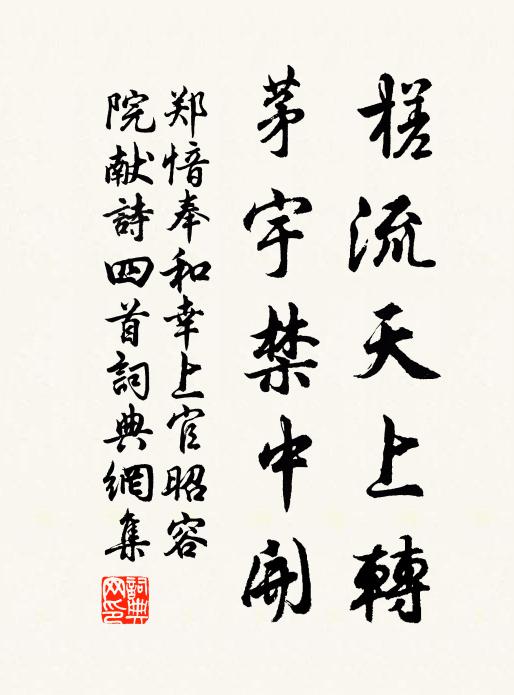 槎流天上轉
茅宇禁中開
郑愔奉和幸上官昭容
院献詩四首詞典網集
詞典
网印